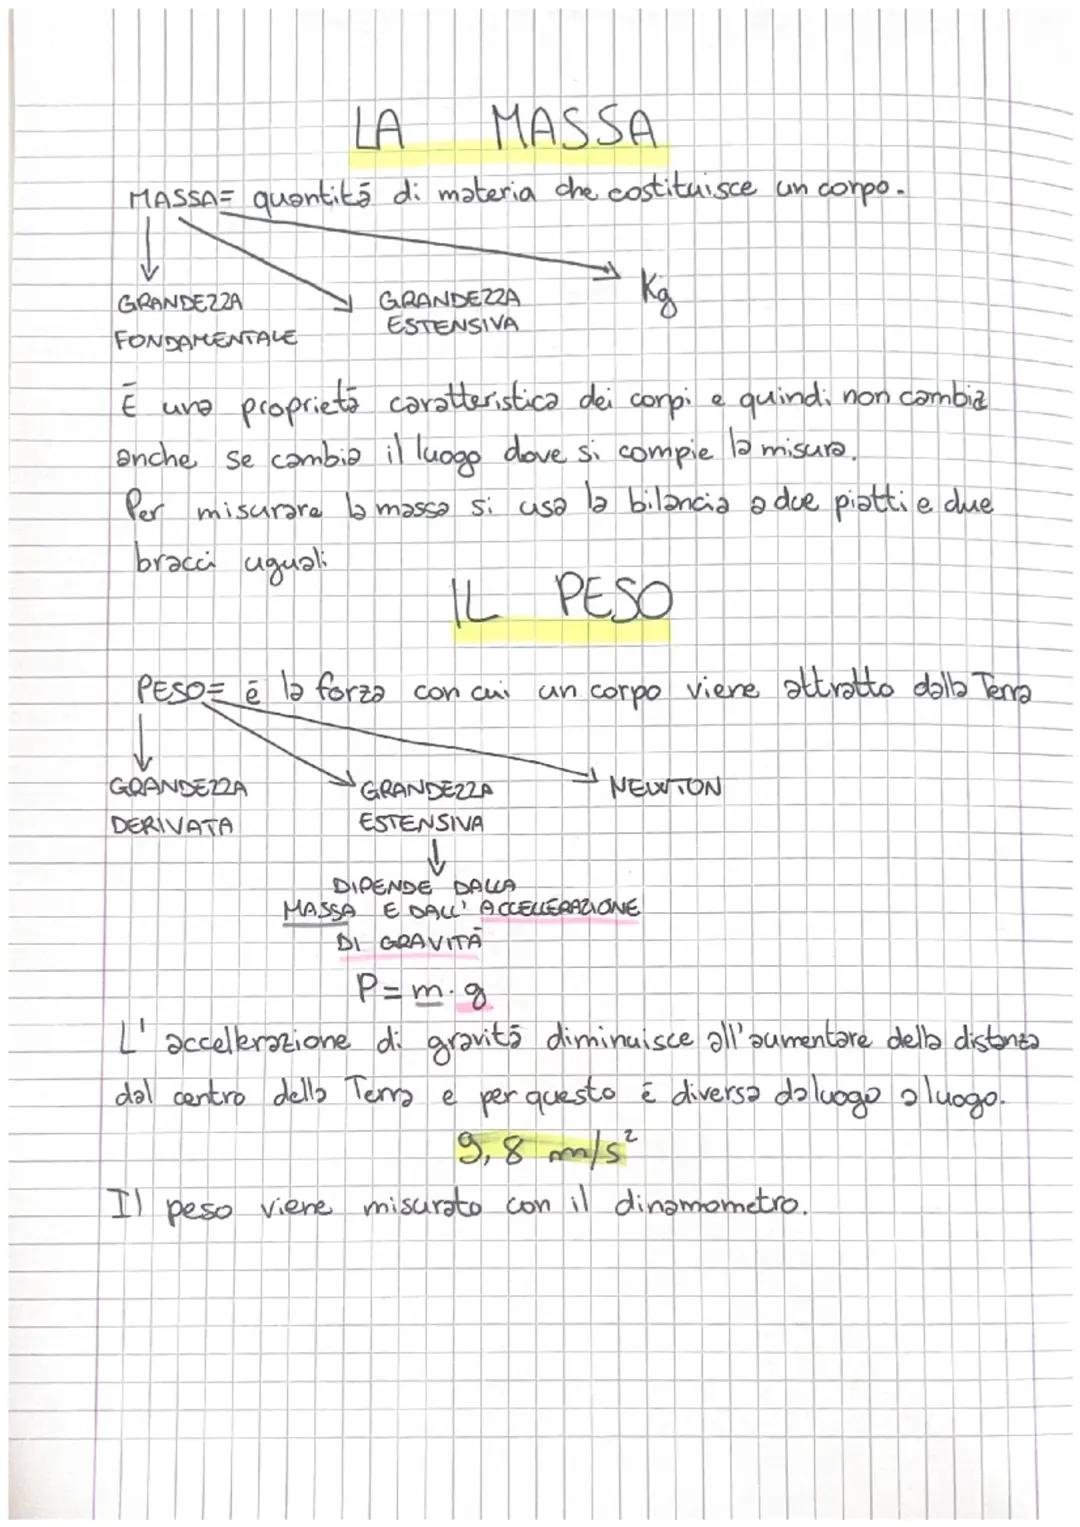 LA MASSA
MASSA= quantitā di materia che costituisce un corpo.
Kg
GRANDEZZA GRANDEZZA
FONDAMENTALE ESTENSIVA
Ē una proprietā caratteristica dei corpi e quindi non cambia
anche se cambia il luogo dove si compie la misura.
Per misurare la massa si usa la bilancia a due piatti e due
bracci uguali
IL PESO
PESO= ē la forza con cui un corpo viene attratto dalla Terra
GRANDEZZA GRANDEZZA NEWTON
DERIVATA ESTENSIVA
DIPENDE DALLA
MASSA E DALL' ACCELLERAZIONE
DI GRAVITĀ
P=m.g
L' accellerazione di gravitā diminuisce all'aumentare della distanza
dal centro della Terra e per questo ē diversa da luogo a luogo.
9,8 m/s²
Il peso viene misurato con il dinamometro.